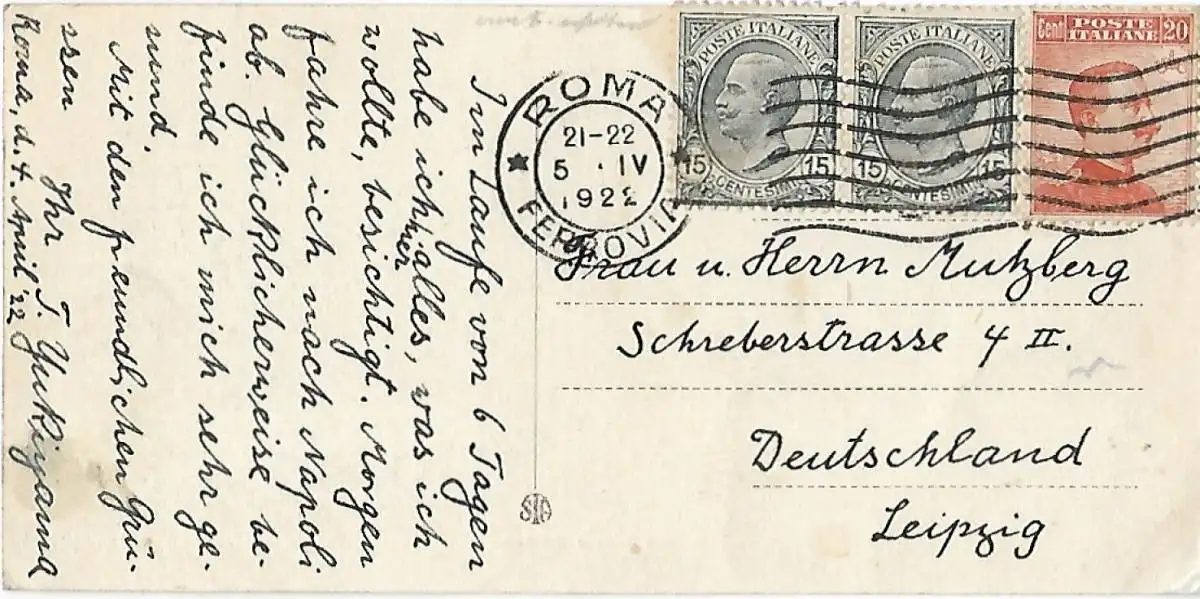 Im Laufe von 6 Tagen
habe ich hier alles, was ich
wollte, besichtigt. Morgen
fahre ich nach Napoli
ab. Glücklicherweise be-
finde ich mich sehr ge-
sund.
Mit den freundlichen Grü-
ssen
Ihr T. Yukiyama
Roma, d. 4. April '22
ROMA
21-22
5 · IV
1922
FERROVIA
POSTE ITALIANE
15 15
CENTESIMI
POSTE ITALIANE
15 15
CENTESIMI
Cent POSTE ITALIANE 20
Frau u. Herrn Mutzberg
Schreberstrasse 4 II.
Deutschland
Leipzig